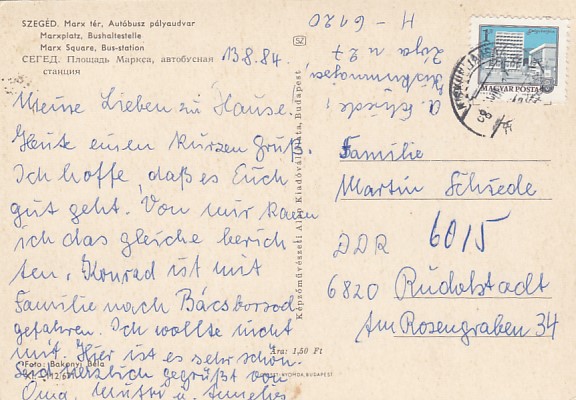 SZEGED. Marx tér, Autóbusz pályaudvar
Marxplatz, Bushaltestelle
Marx Square, Bus-station
СЕГЕД. Площадь Маркса, автобусная
станция
13.8.84.
Meine Lieben zu Hause.
Heute einen kurzen Gruß.
Ich hoffe, daß es Euch
gut geht. Von mir kann
ich das gleiche berich
ten. Konrad ist mit
Familie nach Bácsborsod
gefahren. Ich wollte nicht
mit. Hier ist es sehr schön.
Seid herzlich gegrüßt von
Oma, Mutti u.
Foto: Bakonyi Béla
SZ
Képzőművészeti Alap Kiadóvállalata, Budapest
Ára: 1,50 Ft
NYOMDA, BUDAPEST
H - 6120
n 27
Kiskunmajsa
A. Schiede!
1 Ft
MAGYAR POSTA
Familie
Martin Schiede
DDR 6015
6820 Rudolstadt
Am Rosengraben 34